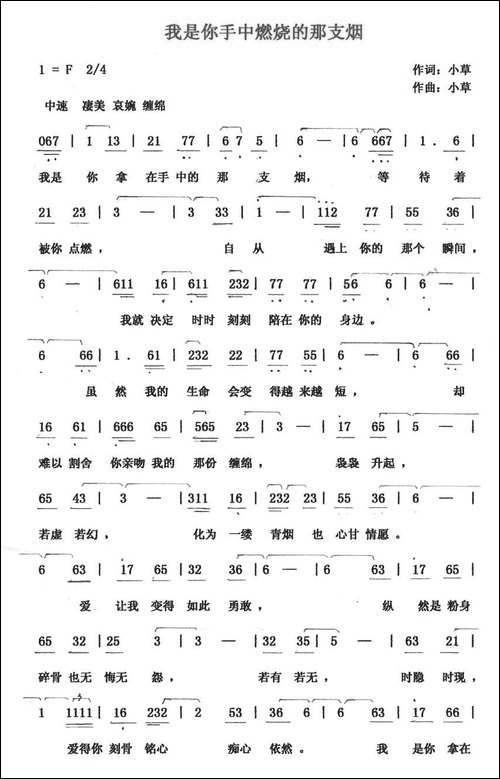 我是你手中燃烧的那支烟
1 = F 2/4 作词：小草
作曲：小草
中速 凄美 哀婉 缠绵
067 | 1 13 | 21 77 | 6 7 5 | 6 — | 6 667 | 1 . 6 |
我是 你 拿 在手 中的 那 支 烟， 等 待 着
21 23 | 3 — | 3 33 | 1 — | 112 77 | 55 36 |
被你 点燃， 自 从 遇上 你的 那个 瞬间，
6 — | 611 16 | 611 232 | 77 77 | 56 6 |
我就 决定 时时 刻刻 陪在 你的 身边。
6 66 | 1 . 61 | 232 22 | 77 55 | 6 — | 6 66 |
虽 然 我的 生命 会变 得越 来越 短， 却
16 61 | 666 65 | 565 23 | 3 — | 17 65 | 5 — |
难以 割舍 你亲吻 我的 那份 缠绵， 袅袅 升起，
65 43 | 3 — | 311 16 | 232 23 | 55 36 | 6 — |
若虚 若幻， 化为 一缕 青烟 也 心甘 情愿。
6 63 | 17 65 | 35 32 | 36 — | 6 63 | 17 65 |
爱 让我 变得 如此 勇敢， 纵 然是 粉身
65 32 | 25 3 | 3 — | 32 35 | 5 — | 63 21 |
碎骨 也无 悔无 怨， 若有 若无， 时隐 时现，
1 1111 | 16 232 | 2 53 | 36 6 | 6 63 | 17 66 |
爱得你 刻骨 铭心 痴心 依然。 我 是你 拿在